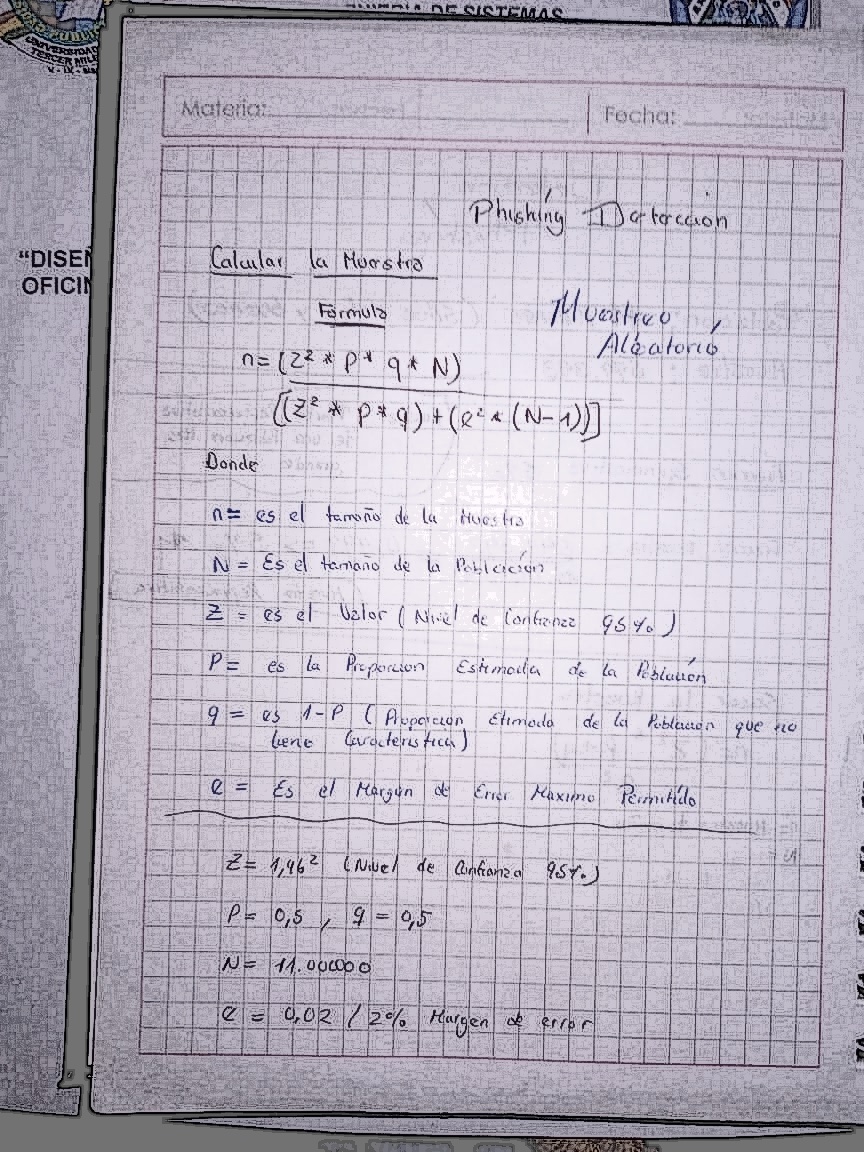 DE SISTEMAS
UNIVERSIDAD
TERCER MILE
"DISEÑ
OFICIN
Materia:
Fecha:
Phishing Detección
Calcular la Muestra
Formula
Muestreo
Aleatorio
n= (Z² * P * q * N)
[(Z² * P * q) + (e² * (N-1))]
Donde
n= es el tamaño de la Muestra
N = Es el tamaño de la Población
Z = es el Valor (Nivel de Confianza 95%)
P = es la Proporcion Estimada de la Población
q = es 1-P (Proporcion Etimada de la Población que no
tiene Caracteristica)
e = Es el Margen de Error Maximo Permitido
Z = 1,96² (Nivel de Confianza 95%)
P = 0,5 , q = 0,5
N = 11.000000
e = 0,02 / 2% Margen de error